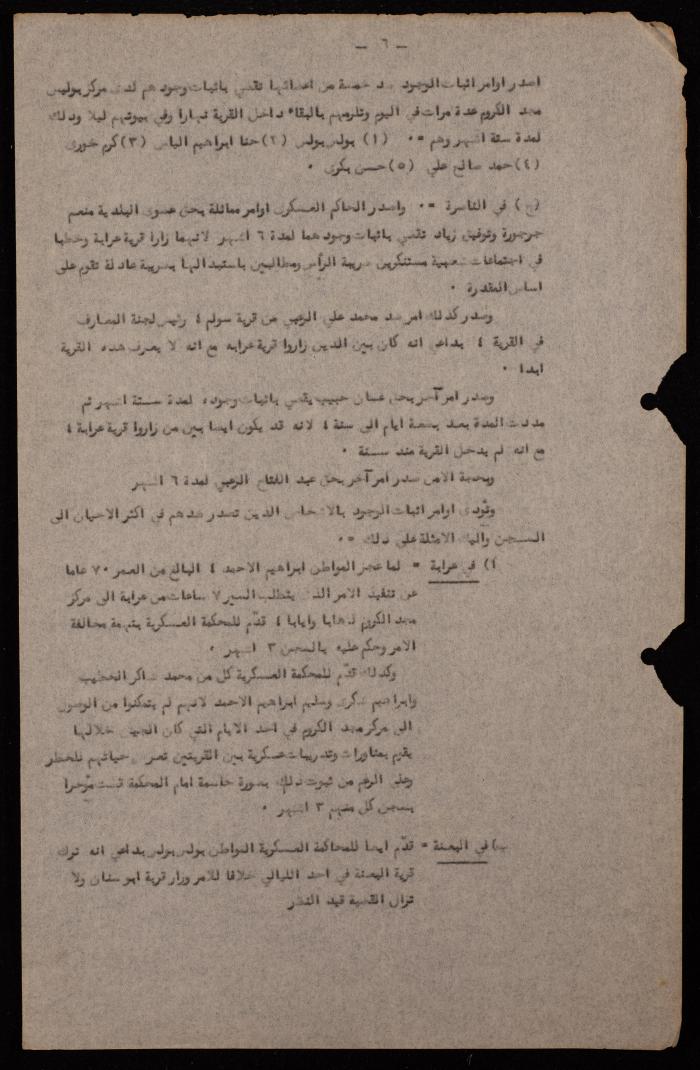 — ٦ —
اصدر اوامر اثبات الوجود ضد خمسة من اعضائها تقضي باثبات وجودهم لدى مركز بوليس
مجد الكروم عدة مرات في اليوم وتلزمهم بالبقاء داخل القرية نهارا وفي بيوتهم ليلا وذلك
لمدة ستة اشهر وهم =٠ (١) بولس بولس (٢) حنا ابراهيم الياس (٣) كرم خوري
(٤) حمد صالح علي (٥) حسن بكري ٠
(ج) في الناصرة =٠ واصدر الحاكم العسكري اوامر مماثلة بحق عضوي البلدية منعم
جرجورة وتوفيق زياد تقضي باثبات وجودهما لمدة ٦ اشهر لانهما زارا قرية عرابة وخطبا
في اجتماعات شعبية مستنكرين ضريبة الرأس ومطالبين باستبدالها بضريبة عادلة تقوم على
اساس المقدرة ٠
وصدر كذلك امر ضد محمد علي الزعبي من قرية سولم ٤ رئيس لجنة المعارف
في القرية ٤ بداعي انه كان بين الذين زاروا قرية عرابه مع انه لا يعرف هذه القرية
ابدا ٠
وصدر امر آخر بحق غسان حبيب يقضي باثبات وجوده لمدة ستة اشهر ثم
مددت المدة بعد بضعة ايام الى سنة ٤ لانه قد يكون ايضا بين من زاروا قرية عرابة ٤
مع انه لم يدخل القرية منذ سنة ٠
وبحجة الامن صدر امر آخر بحق عبد الفتاح الزعبي لمدة ٦ اشهر
وتؤدي اوامر اثبات الوجود بالاشخاص الذين تصدر ضدهم في اكثر الاحيان الى
السجن واليك الامثلة على ذلك =٠
أ) في عرابة = لما عجز المواطن ابراهيم الاحمد ٤ البالغ من العمر ٧٠ عاما
عن تنفيذ الامر الذي يتطلب السير ٧ ساعات من عرابة الى مركز
مجد الكروم ذهابا وايابا ٤ قدّم للمحكمة العسكرية بتهمة مخالفة
الامر وحكم عليه بالسجن ٣ اشهر ٠
وكذلك قدّم للمحكمة العسكرية كل من محمد شاكر الخطيب
وابراهيم شكري وسليم ابراهيم الاحمد لانهم لم يتمكنوا من الوصول
الى مركز مجد الكروم في احد الايام التي كان الجيش خلالها
يقوم بمناورات وتدريبات عسكرية بين القريتين تعرض حياتهم للخطر
وعلى الرغم من ثبوت ذلك بصورة حاسمة امام المحكمة مؤخرا
بسجن كل منهم ٣ اشهر ٠
ب) في البعنة = قدّم ايضا للمحاكمة العسكرية المواطن بولس بولس بداعي انه ترك
قرية البعنة في احد الليالي خلافا للامر وزار قرية ابو سنان ولا
تزال القضية قيد النظر